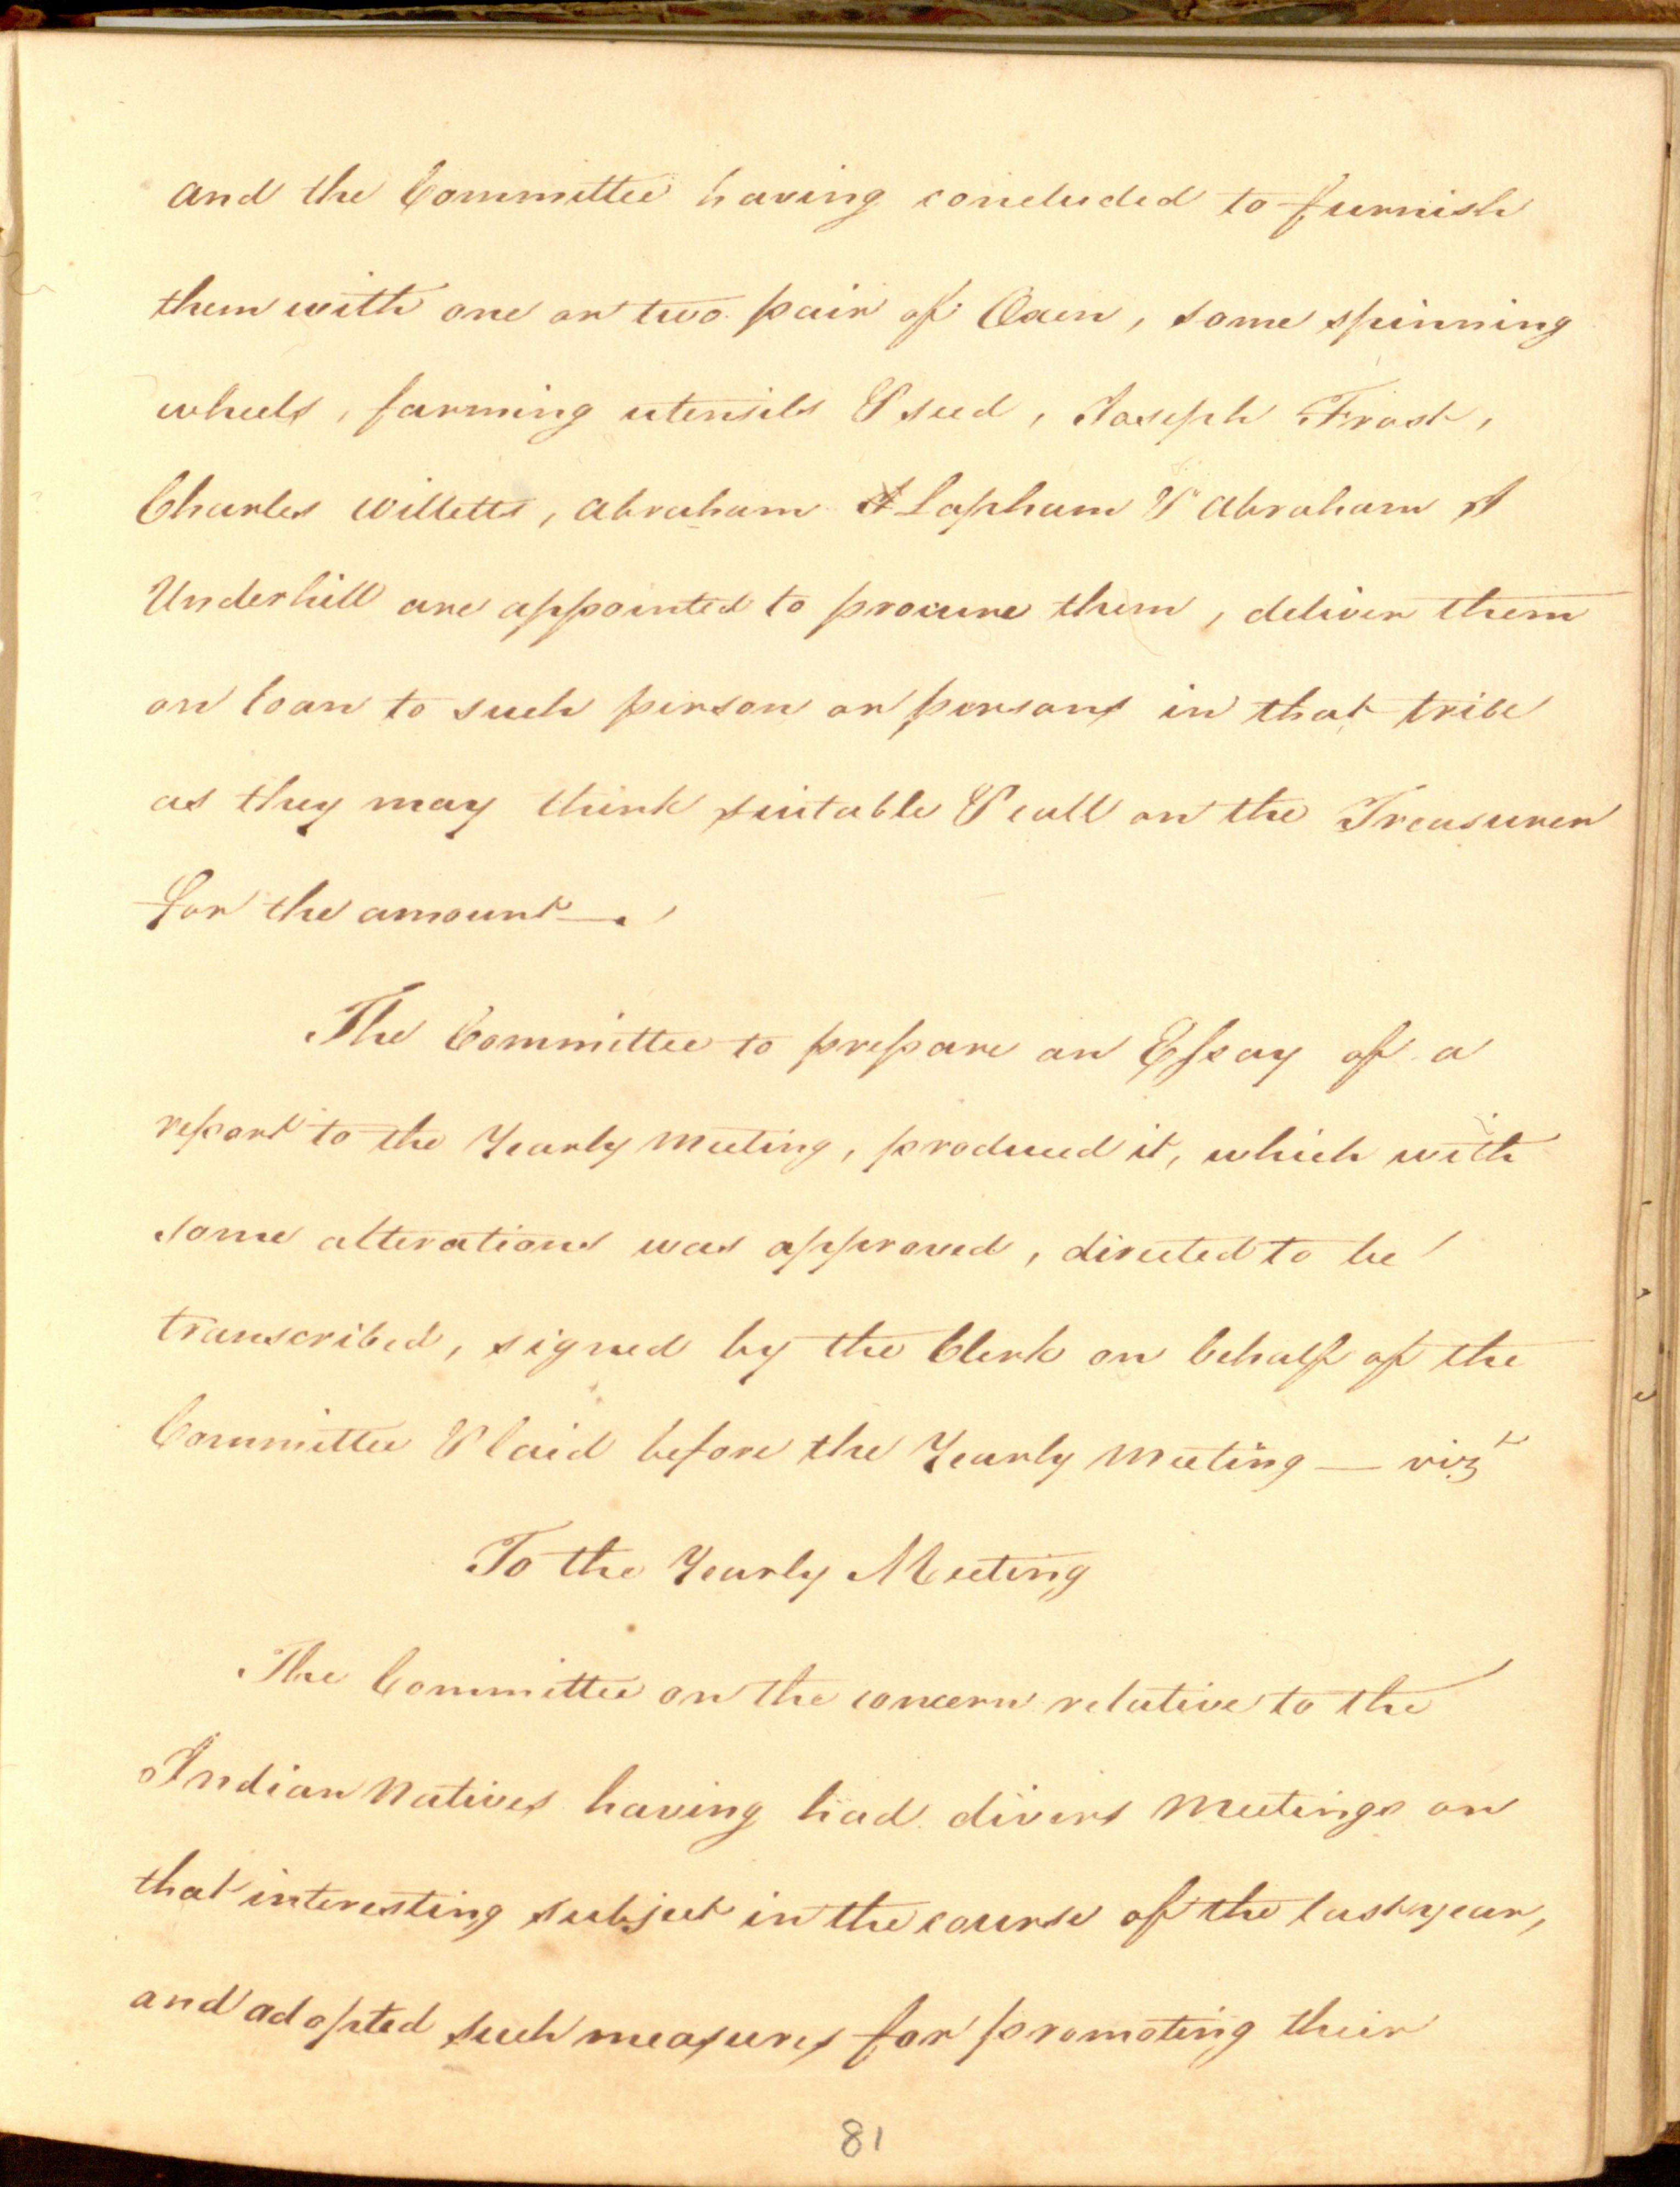 and the Committee having concluded to furnish
them with one or two pair of Oxen, some spinning
wheels, farming utensils & seed, Joseph Frost,
Charles Willetts, Abraham Lapham & Abraham A
Underhill are appointed to procure them, deliver them
on loan to such person or persons in that tribe
as they may think suitable & call on the Treasurer
for the amount —.
The Committee to prepare an Essay of a
report to the Yearly Meeting, produced it, which with
some alterations was approved, directed to be
transcribed, signed by the Clerk on behalf of the
Committee & laid before the Yearly Meeting — vizt
To the Yearly Meeting
The Committee on the concern relative to the
Indian Natives having had divers Meetings on
that interesting subject in the course of the last year,
and adopted such measures for promoting their
81